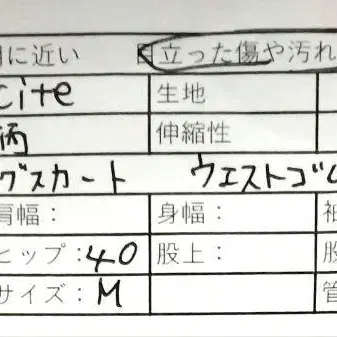 に近い 目立った傷や汚れ
cite 生地
柄 伸縮性
グスカート ウエストゴム
肩幅： 身幅： 袖
ヒップ：40 股上： 股
サイズ：M 管